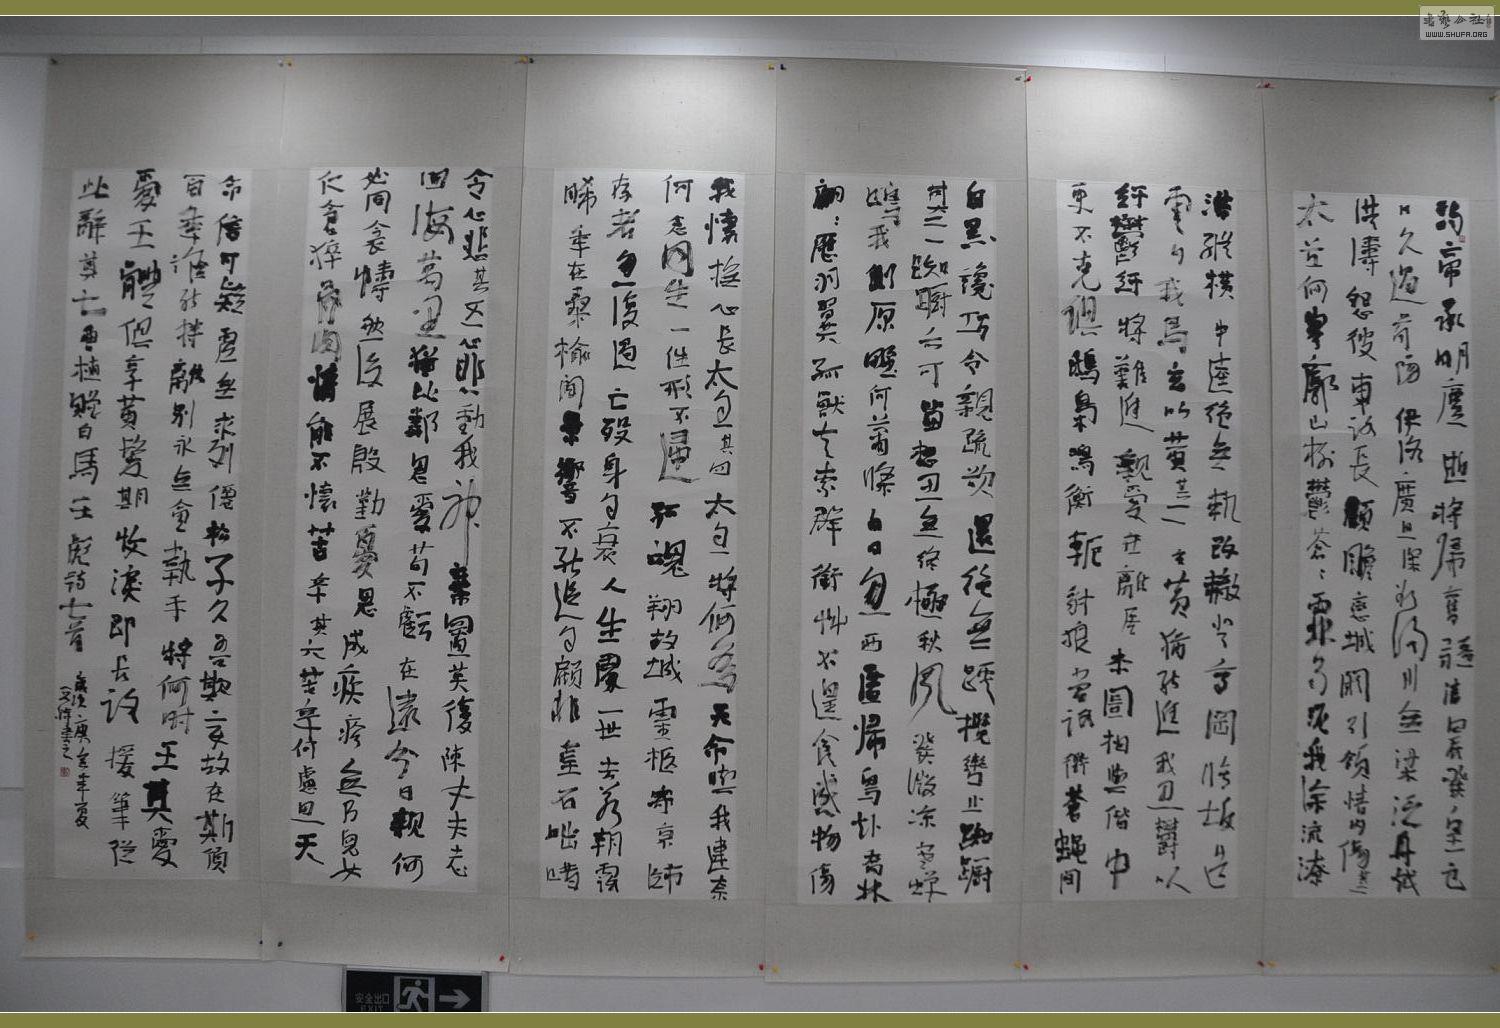 謁帝承明廬逝將歸舊疆清晨發皇邑
日夕過首陽伊洛廣且深欲濟川無梁泛舟越
洪濤怨彼東路長顧瞻戀城闕引領情內傷其一
太谷何寥廓山樹鬱蒼蒼霖雨泥我塗流潦
浩縱橫中逵絕無軌改轍登高岡修坂造
雲日我馬玄以黃其二玄黃猶能進我思鬱以
紆鬱紆將難進親愛在離居本圖相與偕中
更不克俱鴟梟鳴衡軛豺狼當路衢蒼蠅間
白黑讒巧令親疏欲還絕無蹊攬轡止踟躕
其三踟躕亦可留相思無終極秋風發微涼寒蟬
鳴我側原野何蕭條白日忽西匿歸鳥赴喬林
翩翩厲羽翼孤獸走索群銜草不遑食感物傷
我懷撫心長太息其四太息將何為天命與我違奈
何念同生一往形不歸孤魂翔故域靈柩寄京師
存者忽復過亡歿身自衰人生處一世去若朝露
晞年在桑榆間景響不能追自顧非金石咄唶
令心悲其五心悲動我神棄置莫復陳丈夫志
四海萬里猶比鄰恩愛苟不虧在遠分日親何
必同衾幬然後展殷勤憂思成疾疢無乃兒女
仁倉猝骨肉情能不懷苦辛其六苦辛何慮思天
命信可疑虛無求列僊松子久吾欺變故在斯須
百年誰能持離別永無會執手將何時王其愛
愛王體俱享黃髮期收淚即長路援筆從
此辭其七曹植贈白馬王彪詩七首歲次庚寅年夏
書之
安全出口
EXIT
WWW.SHUFA.ORG